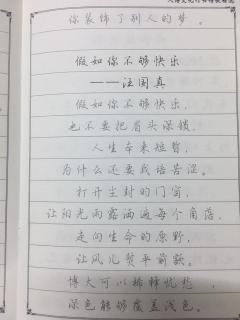 你装饰了别人的梦。
假如你不够快乐
——汪国真
假如你不够快乐,
也不要把眉头深锁,
人生本来短暂,
为什么还要栽培苦涩。
打开尘封的门窗,
让阳光雨露洒遍每个角落,
走向生命的原野,
让风儿熨平前额。
博大可以稀释忧愁,
深色能够覆盖浅色。